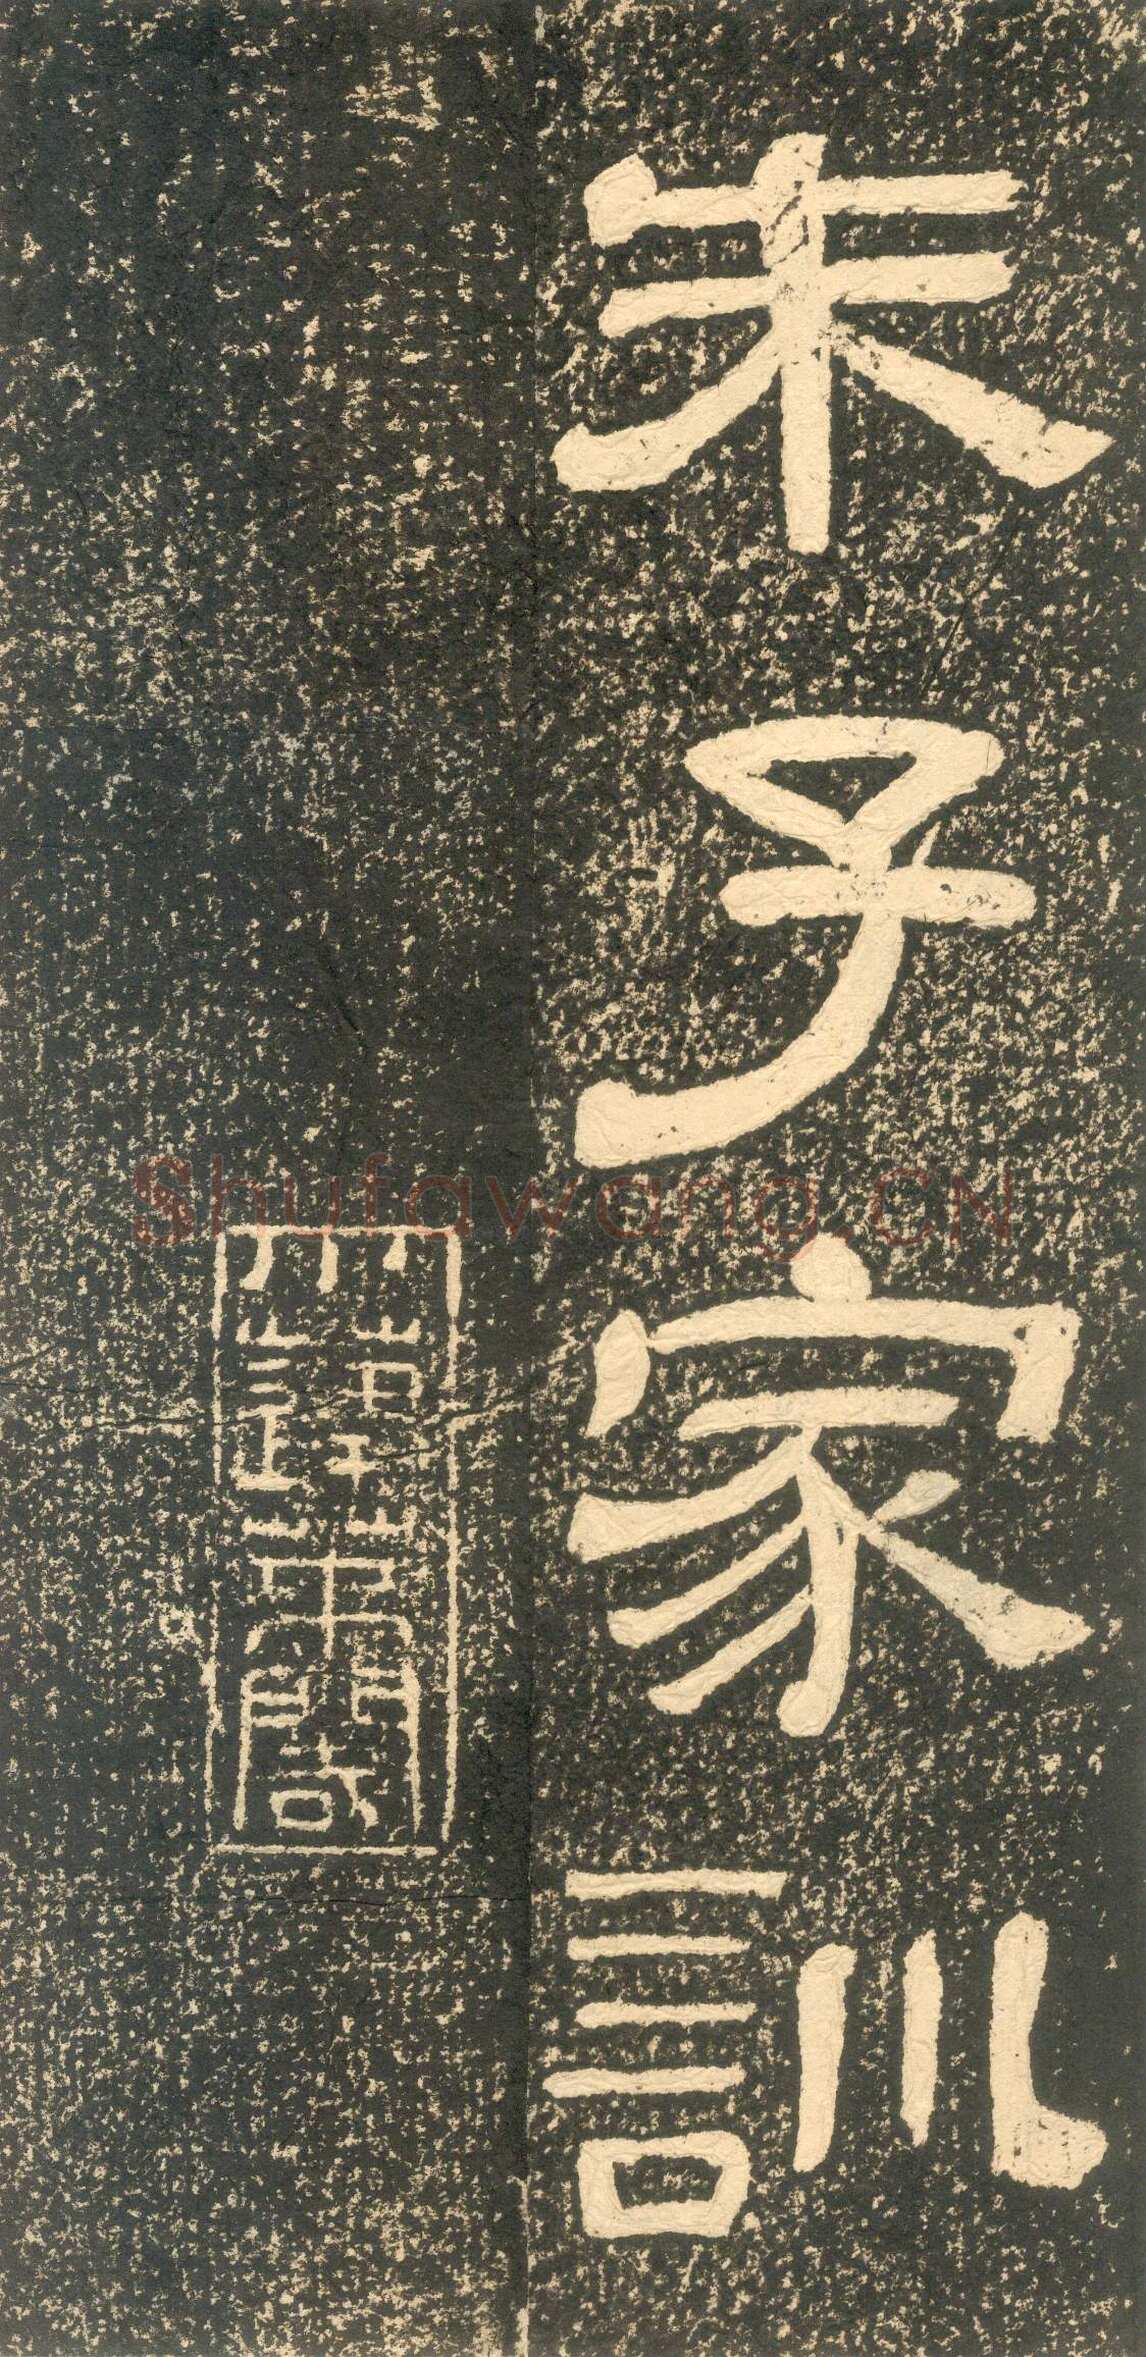 朱子家訓
Shufawang.CN